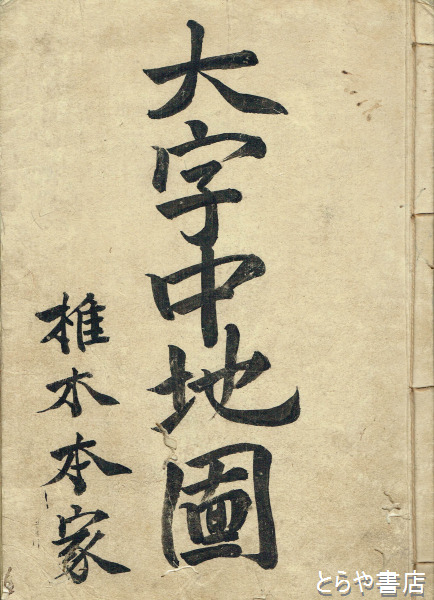 大字中地圖
椎木本家
とらや書店